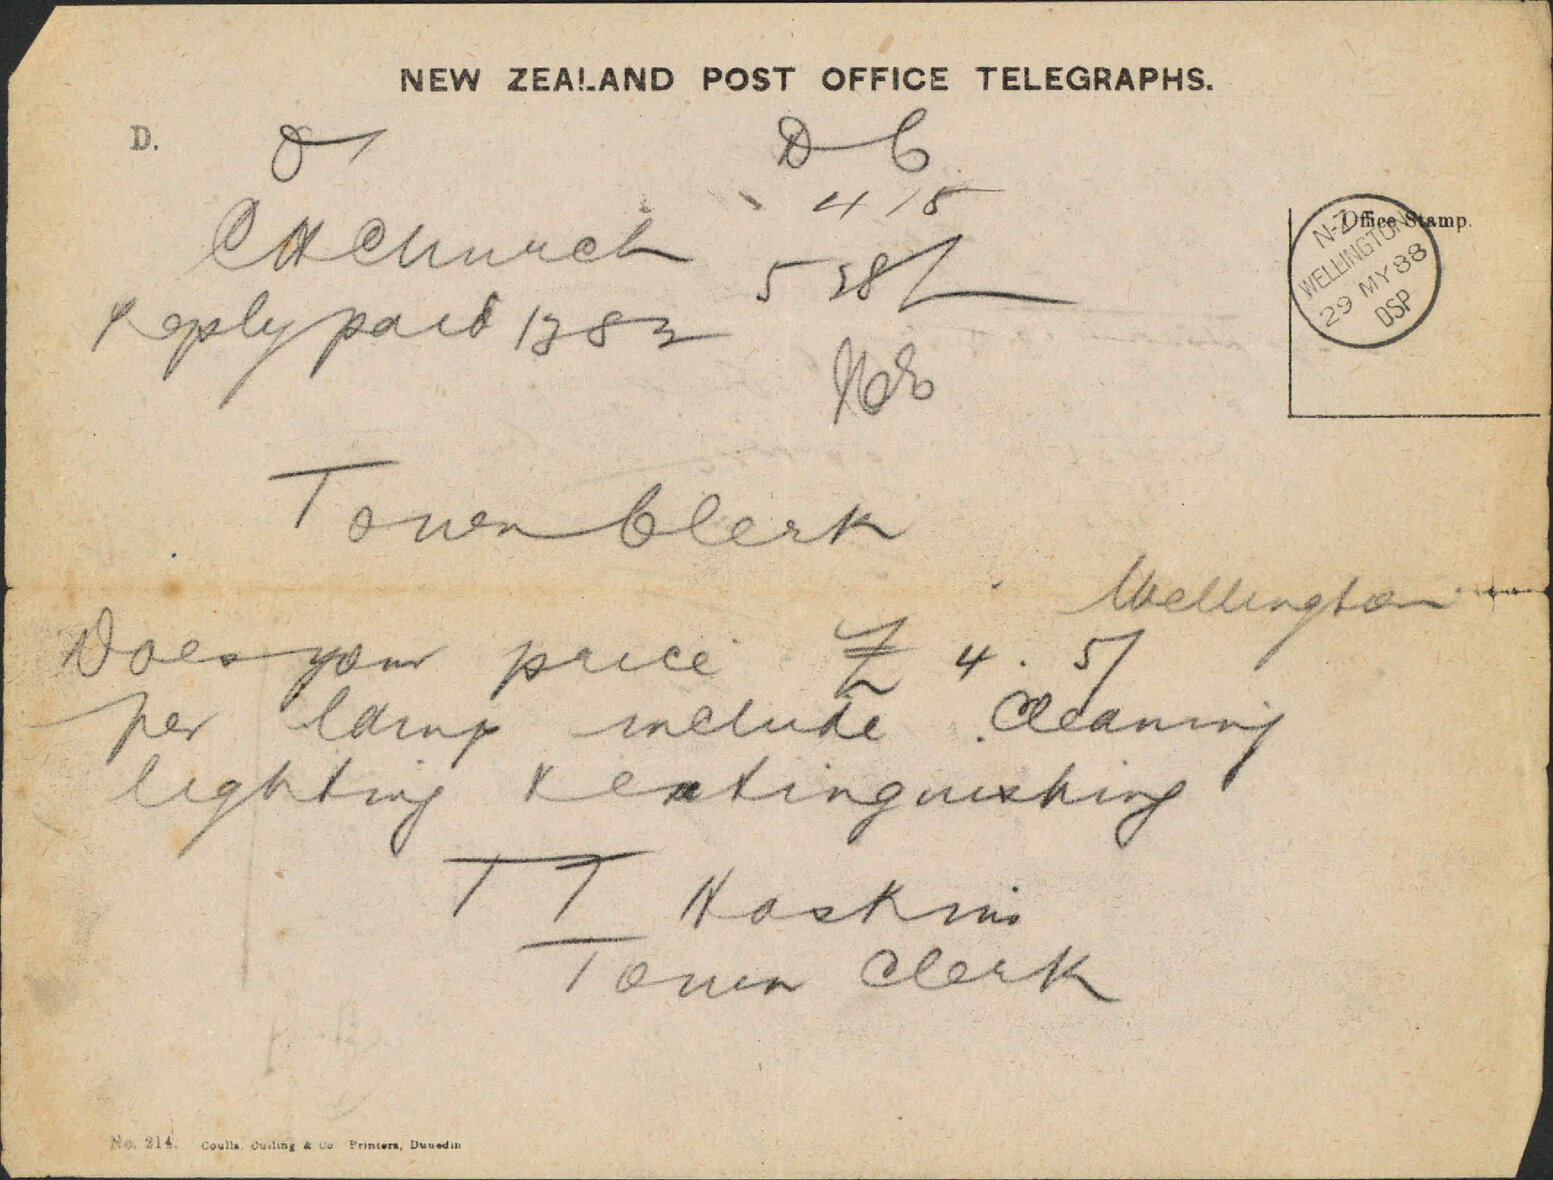 NEW ZEALAND POST OFFICE TELEGRAPHS.
D.
D C
4 15
Office Stamp.
N-Z
WELLINGTON
29 MY 88
DSP
CH Church
Reply paid 1383
Town Clerk
Wellington
Does your price £ 4. 5/
per lamp include cleaning
lighting & extinguishing
T T Hoskins
Town Clerk
No. 214. Coulls, Culling & Co Printers, Dunedin